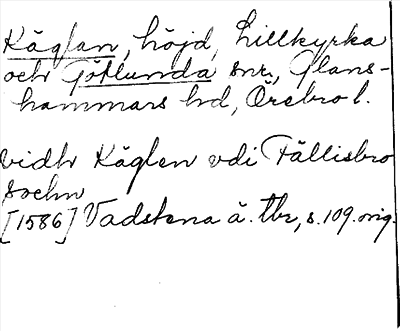 Käglan, höjd, Lillkyrka
och Götlunda snr, Glans-
hammars hd, Örebro l.
vidh Käglen vdi Fällisbro
sochn
[1586] Vadstena ä. tbr, s. 109. orig.